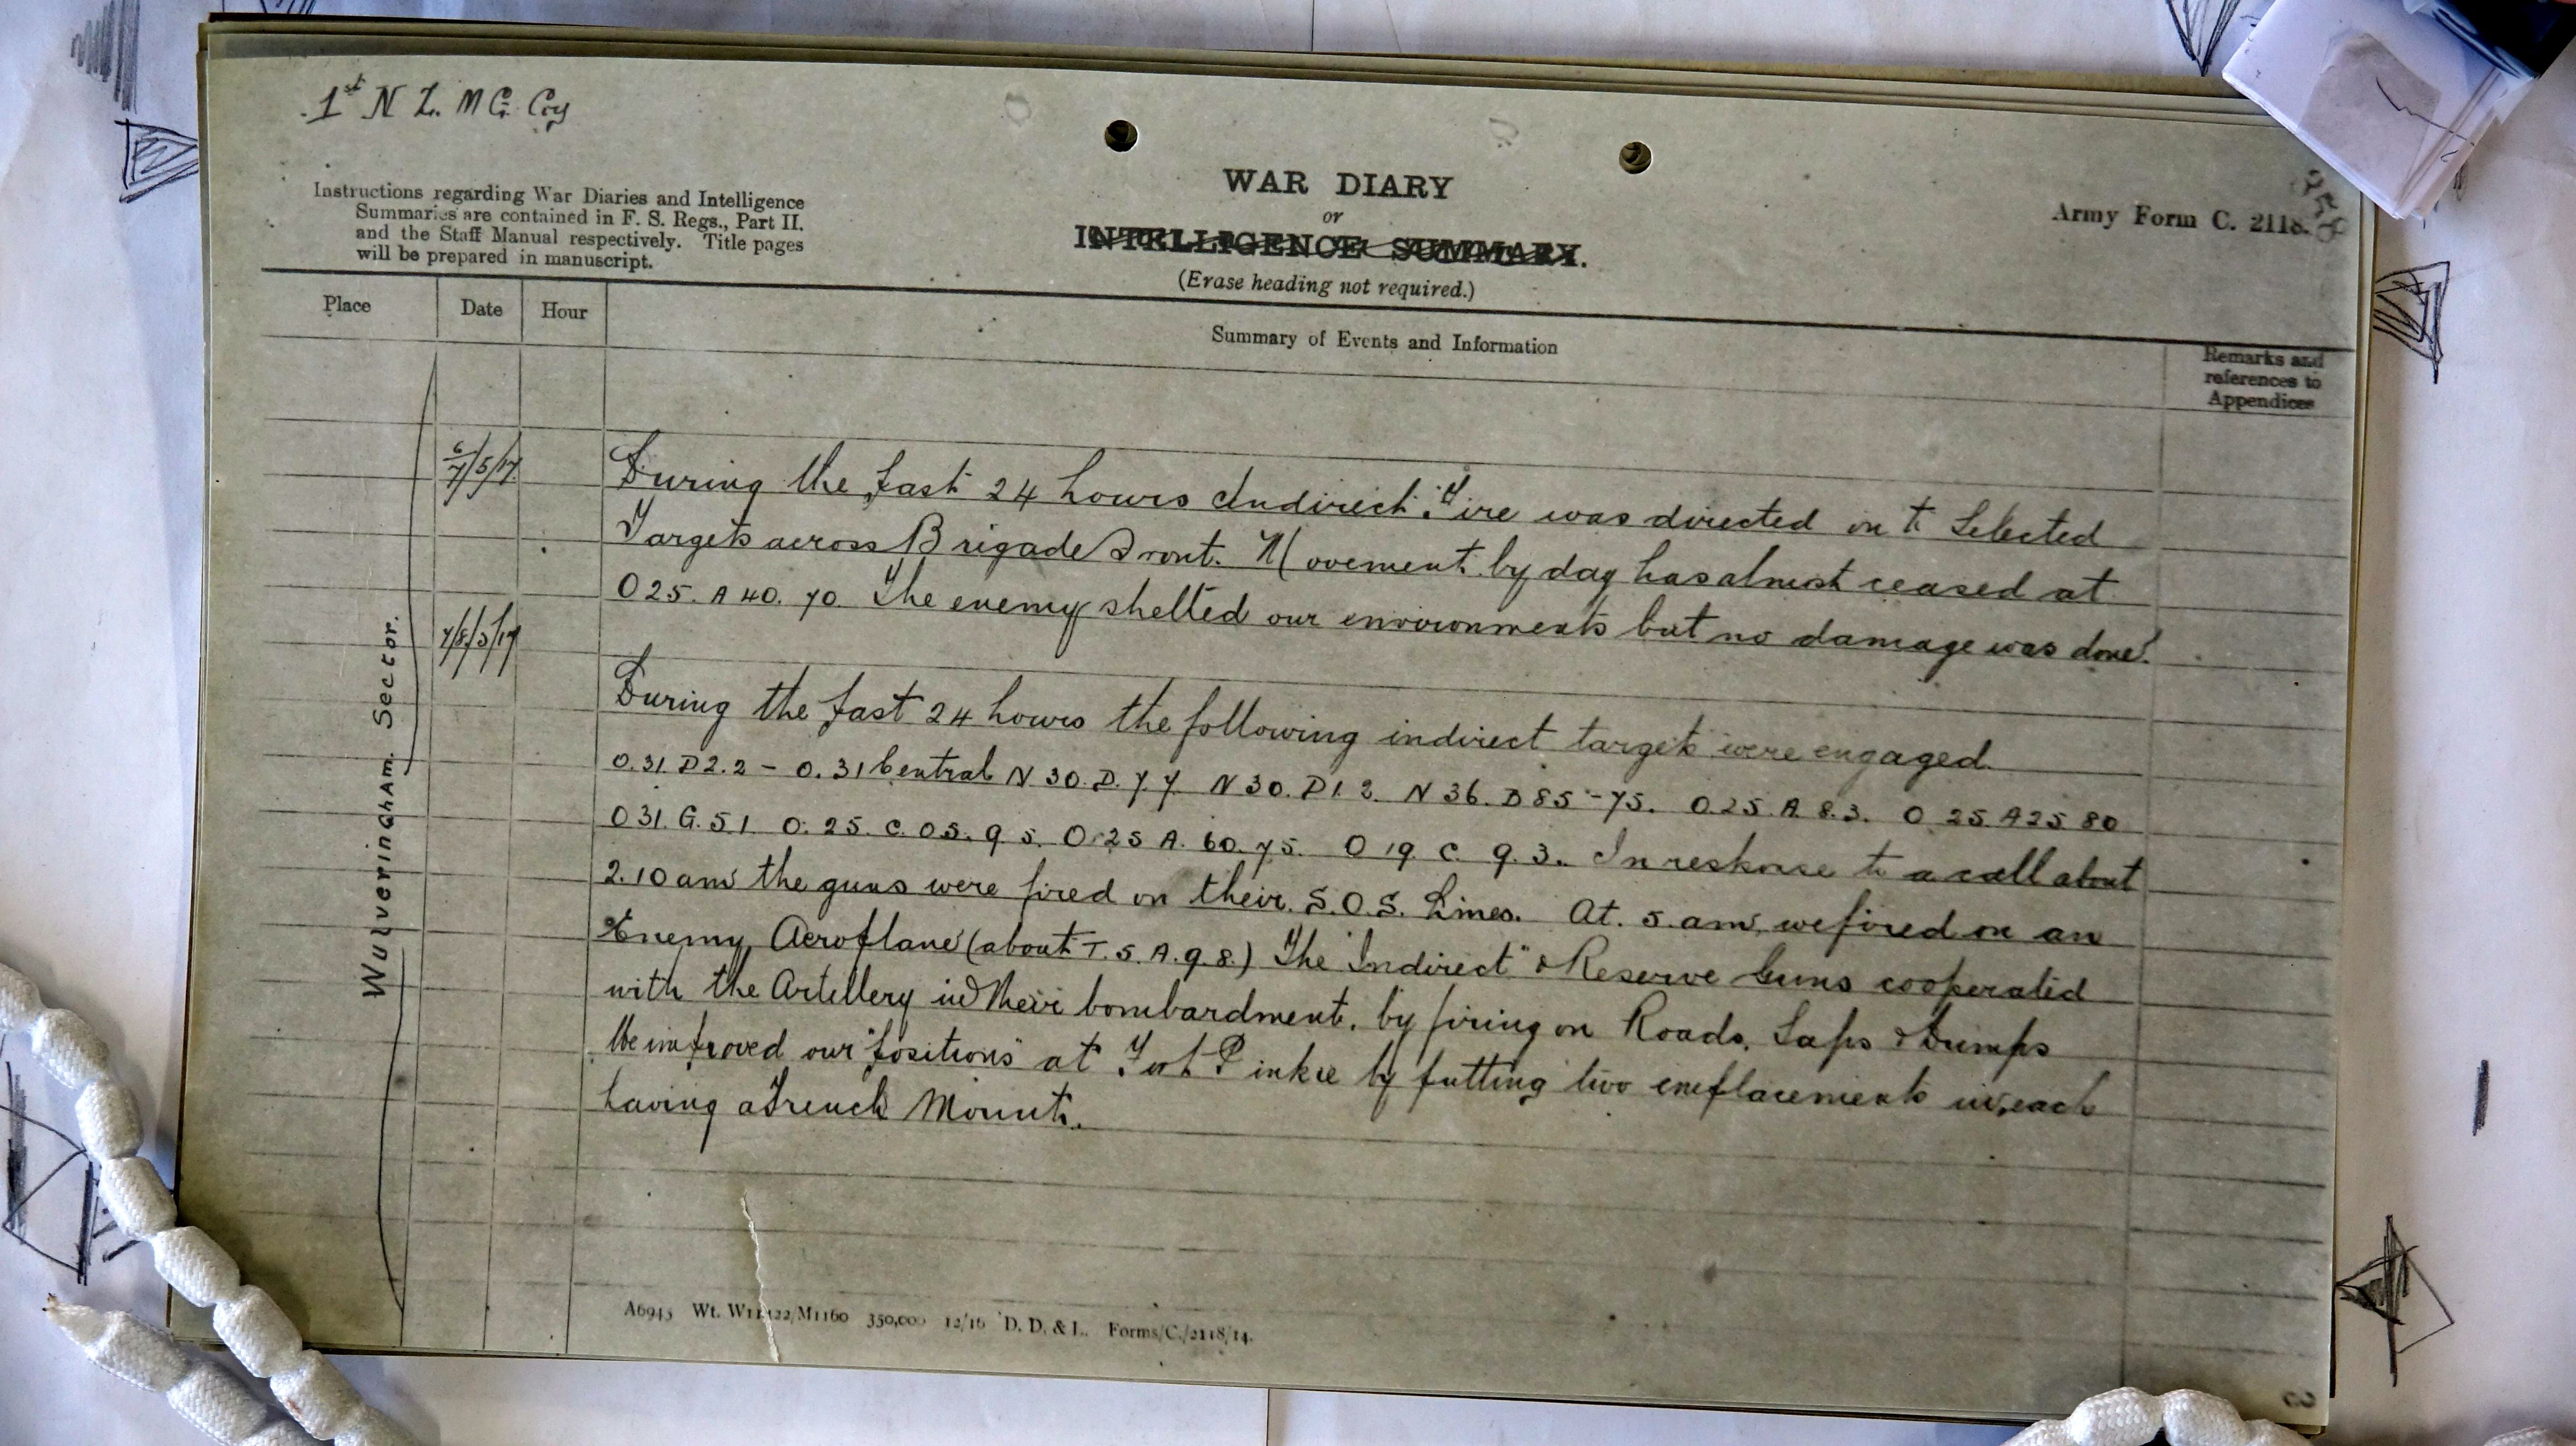 1st N Z. M G. Coy
Instructions regarding War Diaries and Intelligence
Summaries are contained in F. S. Regs., Part II.
and the Staff Manual respectively. Title pages
will be prepared in manuscript.
WAR DIARY
or
INTELLIGENCE SUMMARY.
(Erase heading not required.)
Army Form C. 2118.
Place
Date
Hour
Summary of Events and Information
Remarks and
references to
Appendices
Wulveringham Sector.
6/7/5/17
During the past 24 hours Indirect Fire was directed on to Selected
Targets across Brigade Front. Movement by day has almost ceased at
O 25. A 40. 70. The enemy shelled our environments but no damage was done.
7/8/5/17
During the past 24 hours the following indirect targets were engaged.
O.31. D2.2 - O.31 Central N 30. D. 7.7. N 30. D1.2. N 36. D 85-75. O.25. A. 8.3. O 25. A 25 80
O 31. G. 51. O. 25. C. 05. 95. O.25 A. 60. 75. O 19. C. 9.3. In response to a call about
2.10 am the guns were fired on their S.O.S. Lines. At 5 am we fired on an
Enemy Aeroplane (about T. 5. A. 9.8.) The "Indirect" & Reserve Guns cooperated
with the Artillery in their bombardment, by firing on Roads, Saps & Dumps
We improved our "positions" at Fort Pinkie by putting two emplacements in, each
having a Trench Mount.
A6945 Wt. W11422/M1160 350,000 12/16 D. D. & L. Forms/C./2118/14.